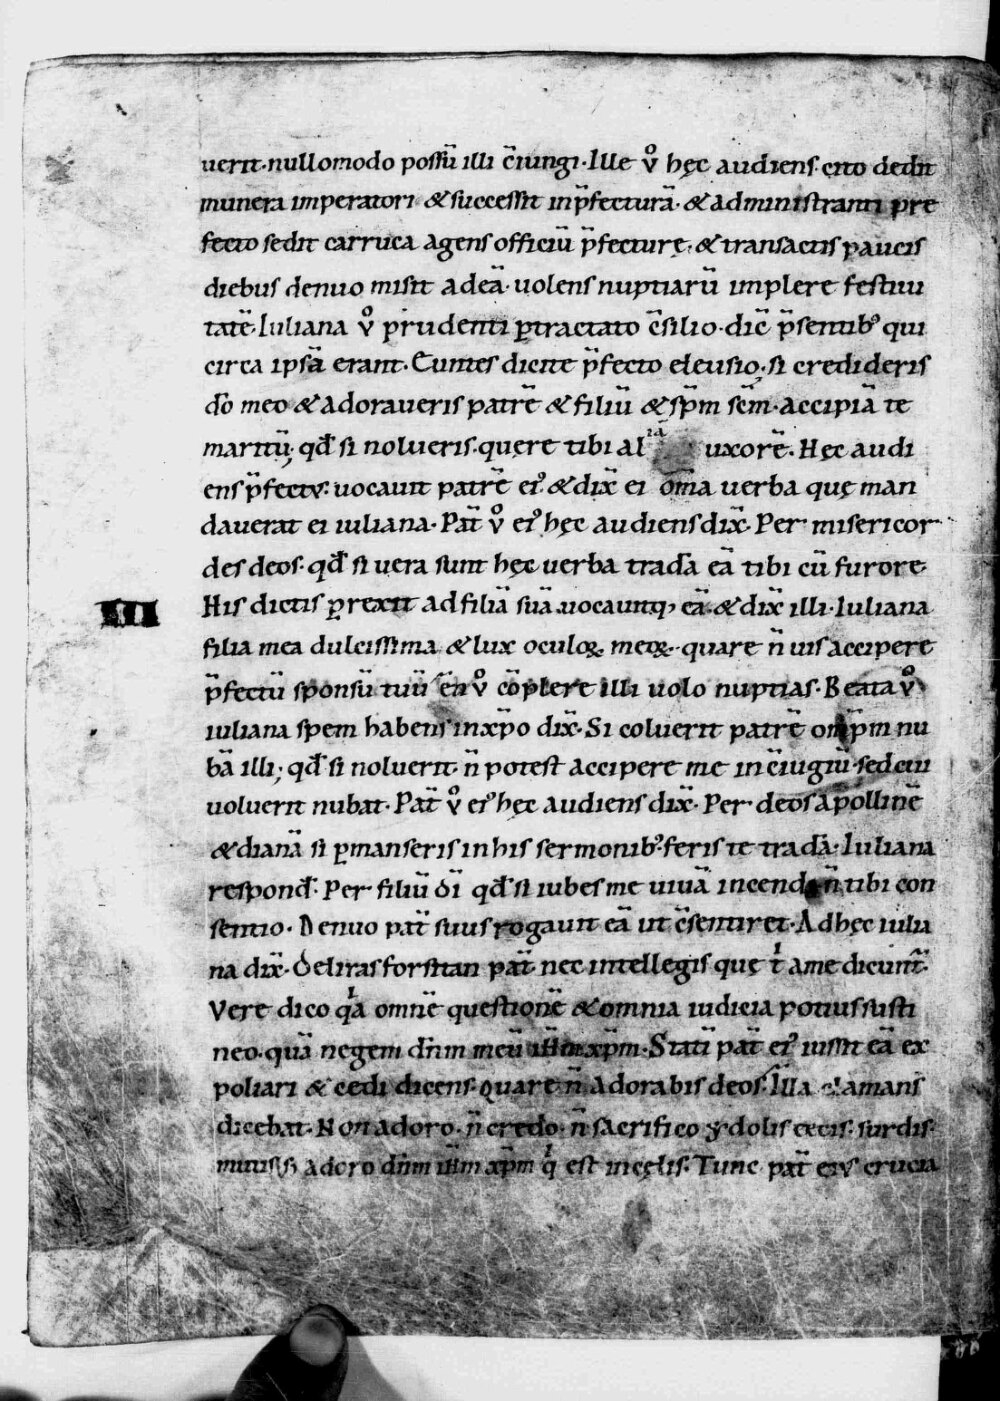 uerit·nullomodo possū illi c̄iungi·Ille v̊ hęc audiens·cito dedit
munera imperatori &successit inp̄fecturā·&administranti pre
fecto sedit carruca agens officiū p̄fecturę·&transactis paucis
diebus denuo misit adeā·uolens nuptiarū implere festiui
tatē·Iuliana v̊ prudenti ꝑtractato c̄silio·dic̄ p̄sentibꝰ qui
circa ipsā erant·Euntes dicite p̄fecto eleusio·si credideris
dō meo &adoraueris patrē &filiū &sp̄m sc̄m·accipiā te
maritū; qđ si nolueris·quere tibi alia uxorē·Hęc audi
ens p̄fectꝰ·uocauit patrē eiꝰ·&dix̄ ei om̄a uerba quę man
dauerat ei iuliana·Pat̄ v̊ eiꝰ hęc audiens dix̄·Per misericor
des deos·qđ si uera sunt hęc uerba tradā eā tibi cū furore·
III His dictis ꝑrexit adfiliā suā·uocauitq; eā·&dix̄ illi·Iuliana
filia mea dulcissima &lux oculoꝝ meoꝝ·quare n̄ uis accipere
p̄fectū sponsū tuū en v̊ cōplere illi uolo nuptias·Beata v̊
iuliana spem habens inxp̄o dix̄·Si coluerit patrē omp̄m nu
bā illi; qđ si noluerit·n̄ potest accipere me inc̄iugiū·sedcui
uoluerit nubat·Pat̄ v̊ eiꝰ hęc audiens dix̄·Per deos apollinē
&dianā si ꝑmanseris inhis sermonibꝰ·feris te tradā·Iuliana
respond̄·Per filiū dī qđ si iubes me uiuā incendi n̄ tibi con
sentio·Denuo pat̄ suus rogauit eā ut c̄sentiret·Adhęc iulia
na dix̄·Deliras forsitan pat̄ nec intellegis quę t͛ ame dicunt̄·
Vere dico qͥa omnē questionē &omnia iudicia potius susti
neo·quā negem dn̄m meū ih̄m xp̄m·Statī pat̄ eiꝰ iussit eā ex
poliari & cedi dicens·Quare n̄ adorabis deos·Illa clamans
dicebat·Non adoro·n̄ credo·n̄ sacrifico ydolis cecis·surdis·
mutis· adoro dn̄m ih̄m xp̄m qͥ est incęlis·Tunc pat̄ eiꝰ crucia